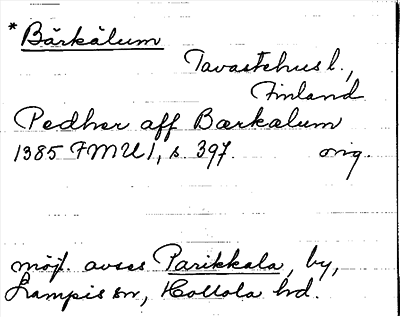 *Bärkälum
Tavastehus l.,
Finland
Pedher aff Bærkælum
1385 FMU 1, s. 397. orig.
möjl. avses Parikkala, by,
Lampis sn, Hollola hd.